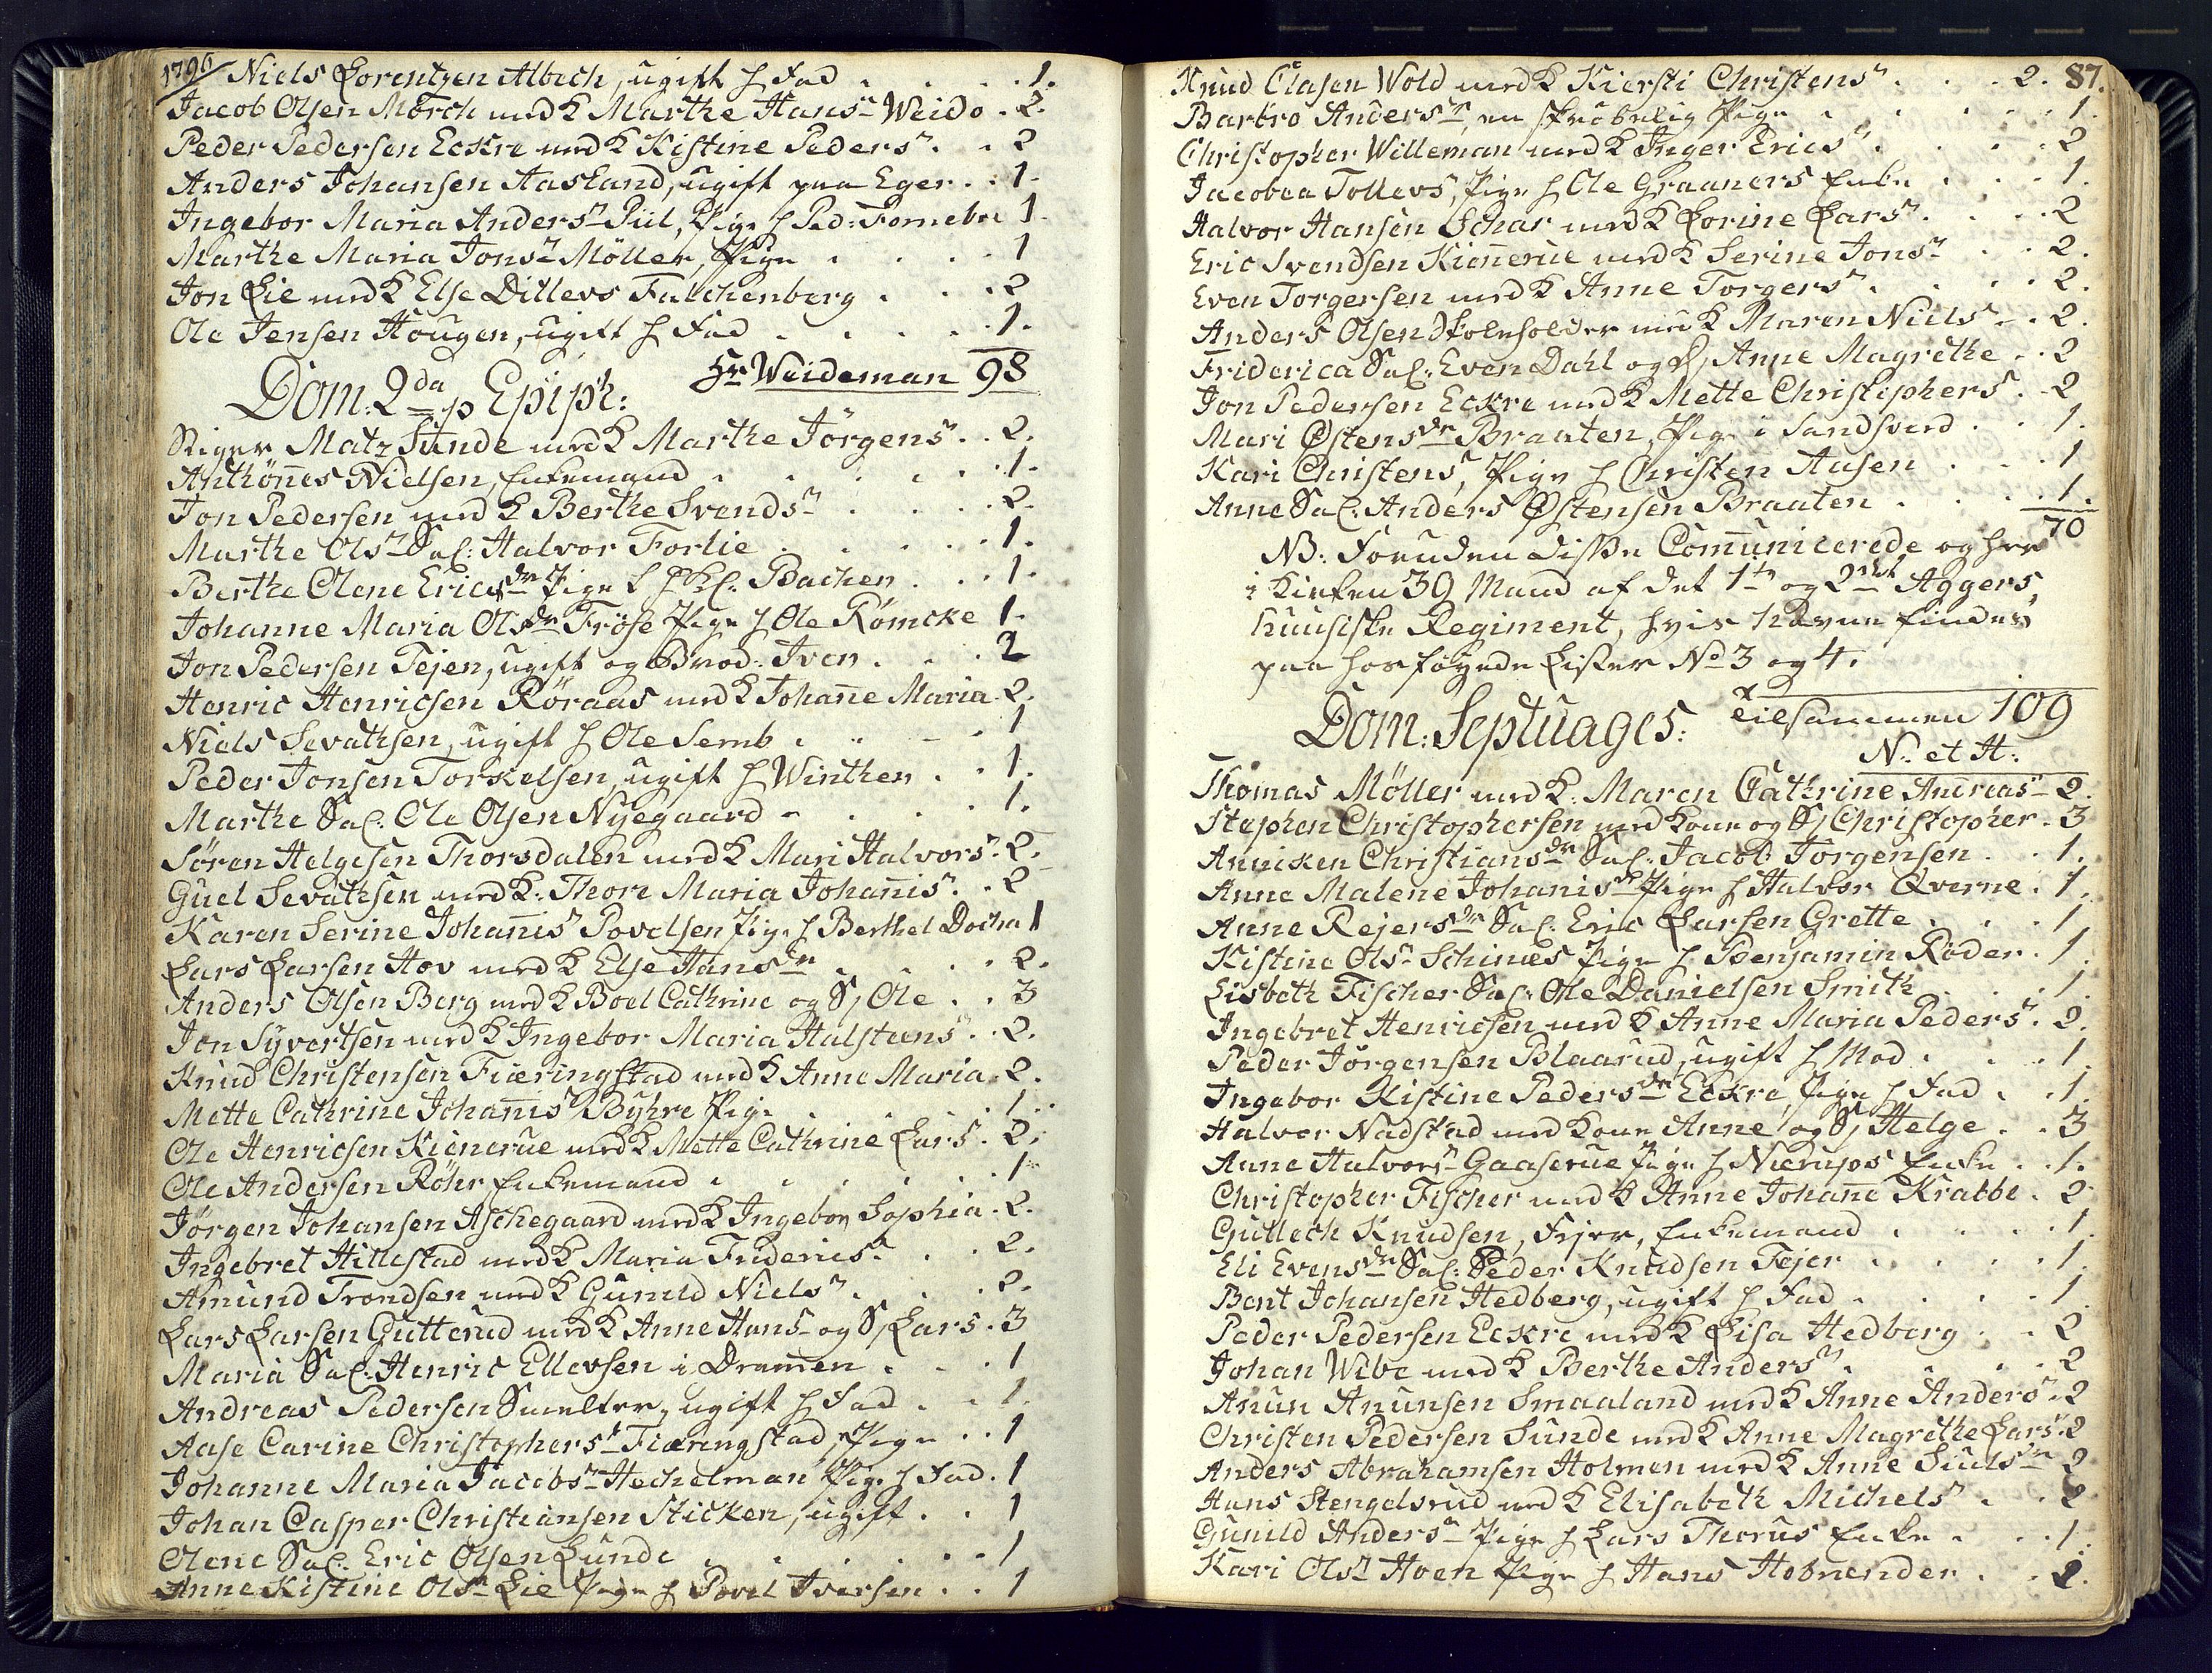 1796/ Niels Lorentzen Albech, ugift h Fad . . . 1.
Jacob Olsen Mörch med K Marthe Hansn Weido . 2.
Peder Pedersen Eckre med K Kistine Pedersn . . 2
Anders Johansen Aasland, ugift paa Eger . . 1.
Ingebor Maria Andersn Piil, Pige h Ped: Forneboe 1.
Marthe Maria Jonsn Möller, Pige . . . . 1
Jon Lie med K Else Ditlevs Falchenberg . . . 2
Ole Jensen Hougen, ugift h Fad . . . . . 1.
Hr Weideman 98
Dom: 2da p Epiph:
Stiger Matz Sunde med K Marthe Jörgens . . 2.
Anthönnes Nielsen, Enkemand . . . . 1.
Jon Pedersen med K Berthe Svendsn . . . . 2.
Marthe Olsn Sal: Halvor Forlie . . . . 1.
Berthe Olene Ericsdr Pige h Bachen . . . 1.
Johanne Maria Olsdr Fröse Pige h Ole Römcke 1.
Jon Pedersen Tejen, ugift og Brod: Iver . . . 2
Henric Henricsen Röraas med K Johañe Maria . 2.
Niels Sevathsen, ugift h Ole Semb . . - . 1
Peder Jonsen Torkelsen, ugift h Winther . . 1.
Marthe Sal: Ole Olsen Nyegaard . . . 1.
Sören Helgesen Thorsdalen med K Mari Halvors . 2.
Guel Sevathsen med K: Thore Maria Johañisn . . 2
Karen Serine Johañis Povelsen Pige h Berthel Docka 1
Lars Larsen Hov med K Else Hansdr . . . . 2.
Anders Olsen Berg med K Boel Cathrine og S, Ole . . 3
Jon Syvertsen med K Ingebor Maria Halsteens . . 2.
Knud Christensen Fiæringstad med K Anne Maria . 2.
Mette Cathrine Johañis Byhre Pige . . . . 1.
Ole Henricsen Kienerue med K Mette Cathrine Lars . 2.
Ole Andersen Röhr, Enkemand . . . . . 1.
Jörgen Johansen Aschegaard med K Ingebor Sophia . 2.
Ingebret Hillestad med K Maria Fridericsn . . . 2.
Amund Trondsen med K Gunild Nielsn . . . 2.
Lars Larsen Gutterud med K Anne Hans og S, Lars . 3
Maria Sal: Henric Ellevsen i Dramen . . . 1
Andreas Pedersen Smelter, ugift h Fad . . 1.
Aase Carine Christophersn Fiæringstad, Pige . . 1
Johanne Maria Jacobsn Hechelman Pige h Fad . 1
Johan Casper Christiansen Sticken, ugift . . 1
Olene Sal: Eric Olsen Lunde . . . . . 1
Anne Kistine Olsn Lie Pige h Povel Iversen . . 1
Knud Olasen Wold med K Kiersti Christensn . . . 2. 87.
Barbro Andersn, en skröbelig Pige . . . . 1.
Christopher Willeman med K Inger Ericsn . . . 2
Jacobea Tollevs, Pige h Ole Graaners Enke . . . 1.
Halvor Hansen Schar med K Lorine Larsn . . . 2
Eric Svendsen Kieñerue med K Serine Jonsn . . 2.
Even Torgersen med K Anne Torgersn . . . . 2.
Anders Olsen Skoleholder med K Maren Niels . . 2.
Friderica Sal: Even Dahl og D, Anne Magrethe . . 2
Jon Pedersen Eckre med K Mette Christiphers . . 2
Mari Østensdr Braaten, Pige i Sandsverd . . 1.
Kari Christensn, Pige h Christen Aasen . . . 1
Anne Sal: Anders Østensen Braaten . . . . 1.
70
NB: Foruden disse Comunicerede og her
i Kirken 39 Mand af det 1te og 2det Aggers,
huusiske Regiment, hvis Navne findes
paa hosföyede Lister No 3 og 4.
Tilsammen 109
Dom: Septuages:
N: et H:
Thomas Möller med K: Maren Cathrine Andreasn 2.
Stephen Christophersen med Kone og S, Christopher . 3
Anniken Christiansdr Sal: Jacob Torgensen . . 1.
Anne Malene Johanisdr Pige h Halvor Qverne . 1.
Anne Rejersdr Sal: Eric Larsen Grette . . . 1
Kistine Olsn Schinæs Pige h Benjamin Röder . 1.
Lisbeth Fischer Sal: Ole Danielsen Smith . . . 1.
Ingebret Henricsen med K Anne Maria Pedersn . 2.
Peder Jörgensen Blaarud, ugift h Mod . . . 1
Ingebor Kistine Pedersdr Eckre, Pige h Fad . . 1.
Halvor Nadstad med Kone Anne og S, Helge . . 3
Anne Halvorsn Gaaserue Pige h Nierups Enke . . 1.
Christopher Fischer med K Anne Johañe Krabbe . 2
Gullech Knudsen, Fejer, Enkemand . . . . 1.
Eli Evensdr Sal: Peder Knudsen Fejer . . . . 1.
Bent Johansen Hedberg, ugift h Fad . . . . 1.
Peder Pedersen Eckre med K Lisa Hedberg . . 2
Johan Wibe med K Berthe Andersn . . . . 2
Anun Anunsen Smaaland med K Anne Anders . 2
Christen Pedersen Sunde med K Anne Magrethe Larsn . 2
Anders Abrahamsen Holmen med K Anne Siulsdr 2
Hans Stengelsrud med K Elisabeth Michels . . 2
Gunild Andersn Pige h Lars Thorus Enke . . . 1.
Kari Olsn Hoen Pige h Hans Hobnender . . 1.